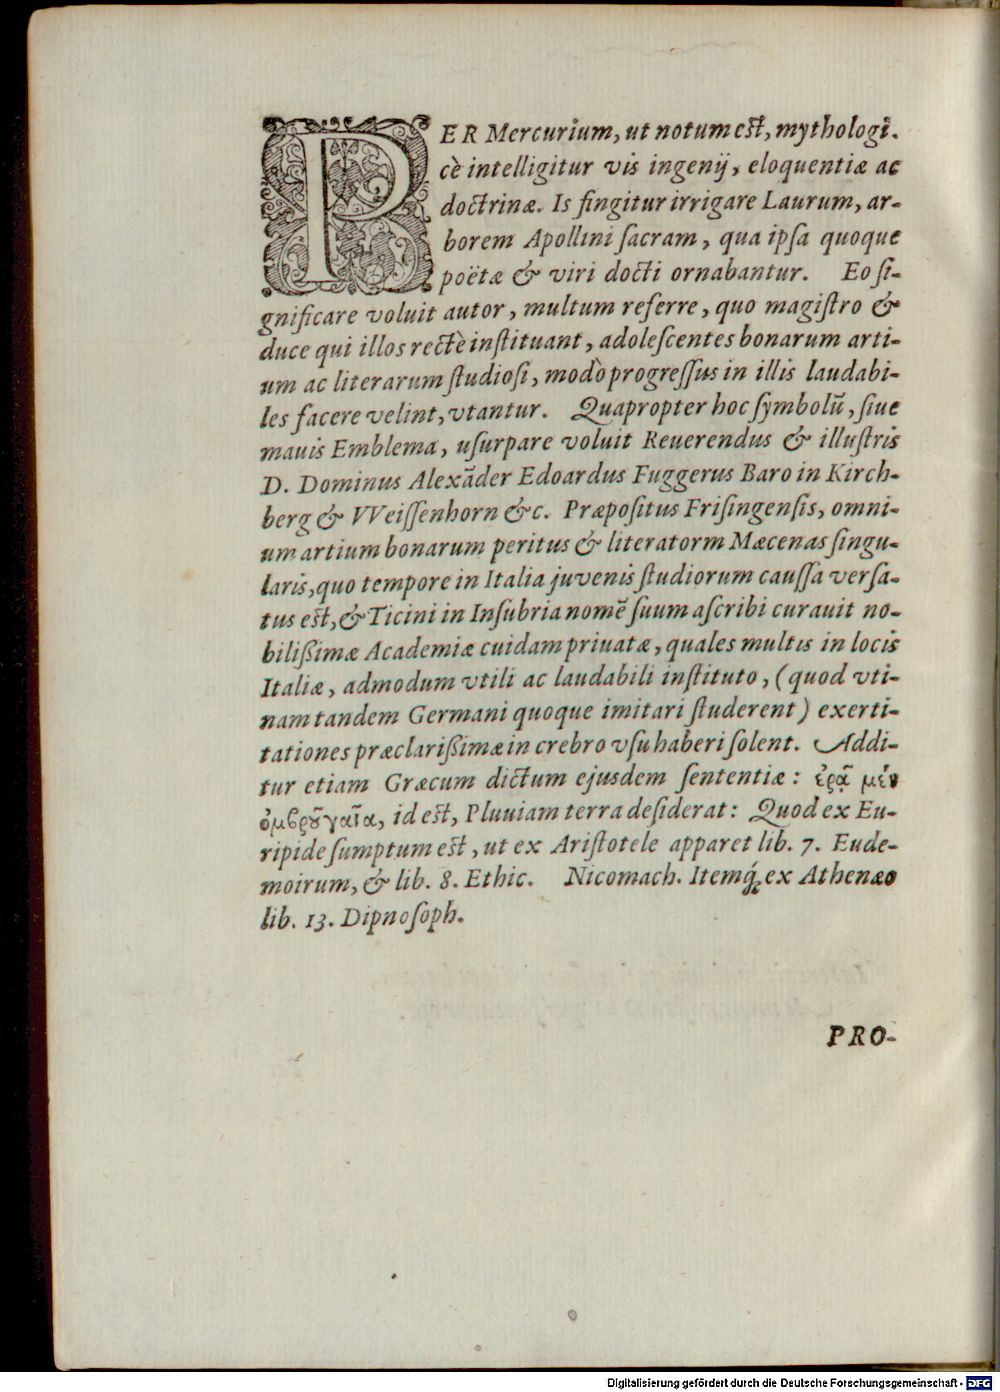 PER Mercurium, ut notum est, mythologi-
cè intelligitur vis ingenij, eloquentiæ ac
doctrinæ. Is fingitur irrigare Laurum, ar-
borem Apollini sacram, qua ipsa quoque
poëtæ & viri docti ornabantur. Eo si-
gnificare voluit autor, multum referre, quo magistro &
duce qui illos rectè instituant, adolescentes bonarum arti-
um ac literarum studiosi, modò progressus in illis laudabi-
les facere velint, vtantur. Quapropter hoc symbolū, siue
mauis Emblema, usurpare voluit Reuerendus & illustris
D. Dominus Alexāder Edoardus Fuggerus Baro in Kirch-
berg & VVeissenhorn &c. Præpositus Frisingensis, omni-
um artium bonarum peritus & literatorm Mæcenas singu-
laris, quo tempore in Italia juvenis studiorum caussa versa-
tus est, & Ticini in Insubria nomē suum ascribi curauit no-
bilißimæ Academiæ cuidam priuatæ, quales multis in locis
Italiæ, admodum vtili ac laudabili instituto, (quod vti-
nam tandem Germani quoque imitari studerent) exerti-
tationes præclarißimæ in crebro vsu haberi solent. Addi-
tur etiam Græcum dictum ejusdem sententiæ: ἐρᾷ μὲν
ὀμβροῦ γαῖα, id est, Pluuiam terra desiderat: Quod ex Eu-
ripide sumptum est, ut ex Aristotele apparet lib. 7. Eude-
moirum, & lib. 8. Ethic. Nicomach. Itemq́; ex Athenæo
lib. 13. Dipnosoph.
PRO-
Digitalisierung gefördert durch die Deutsche Forschungsgemeinschaft - DFG